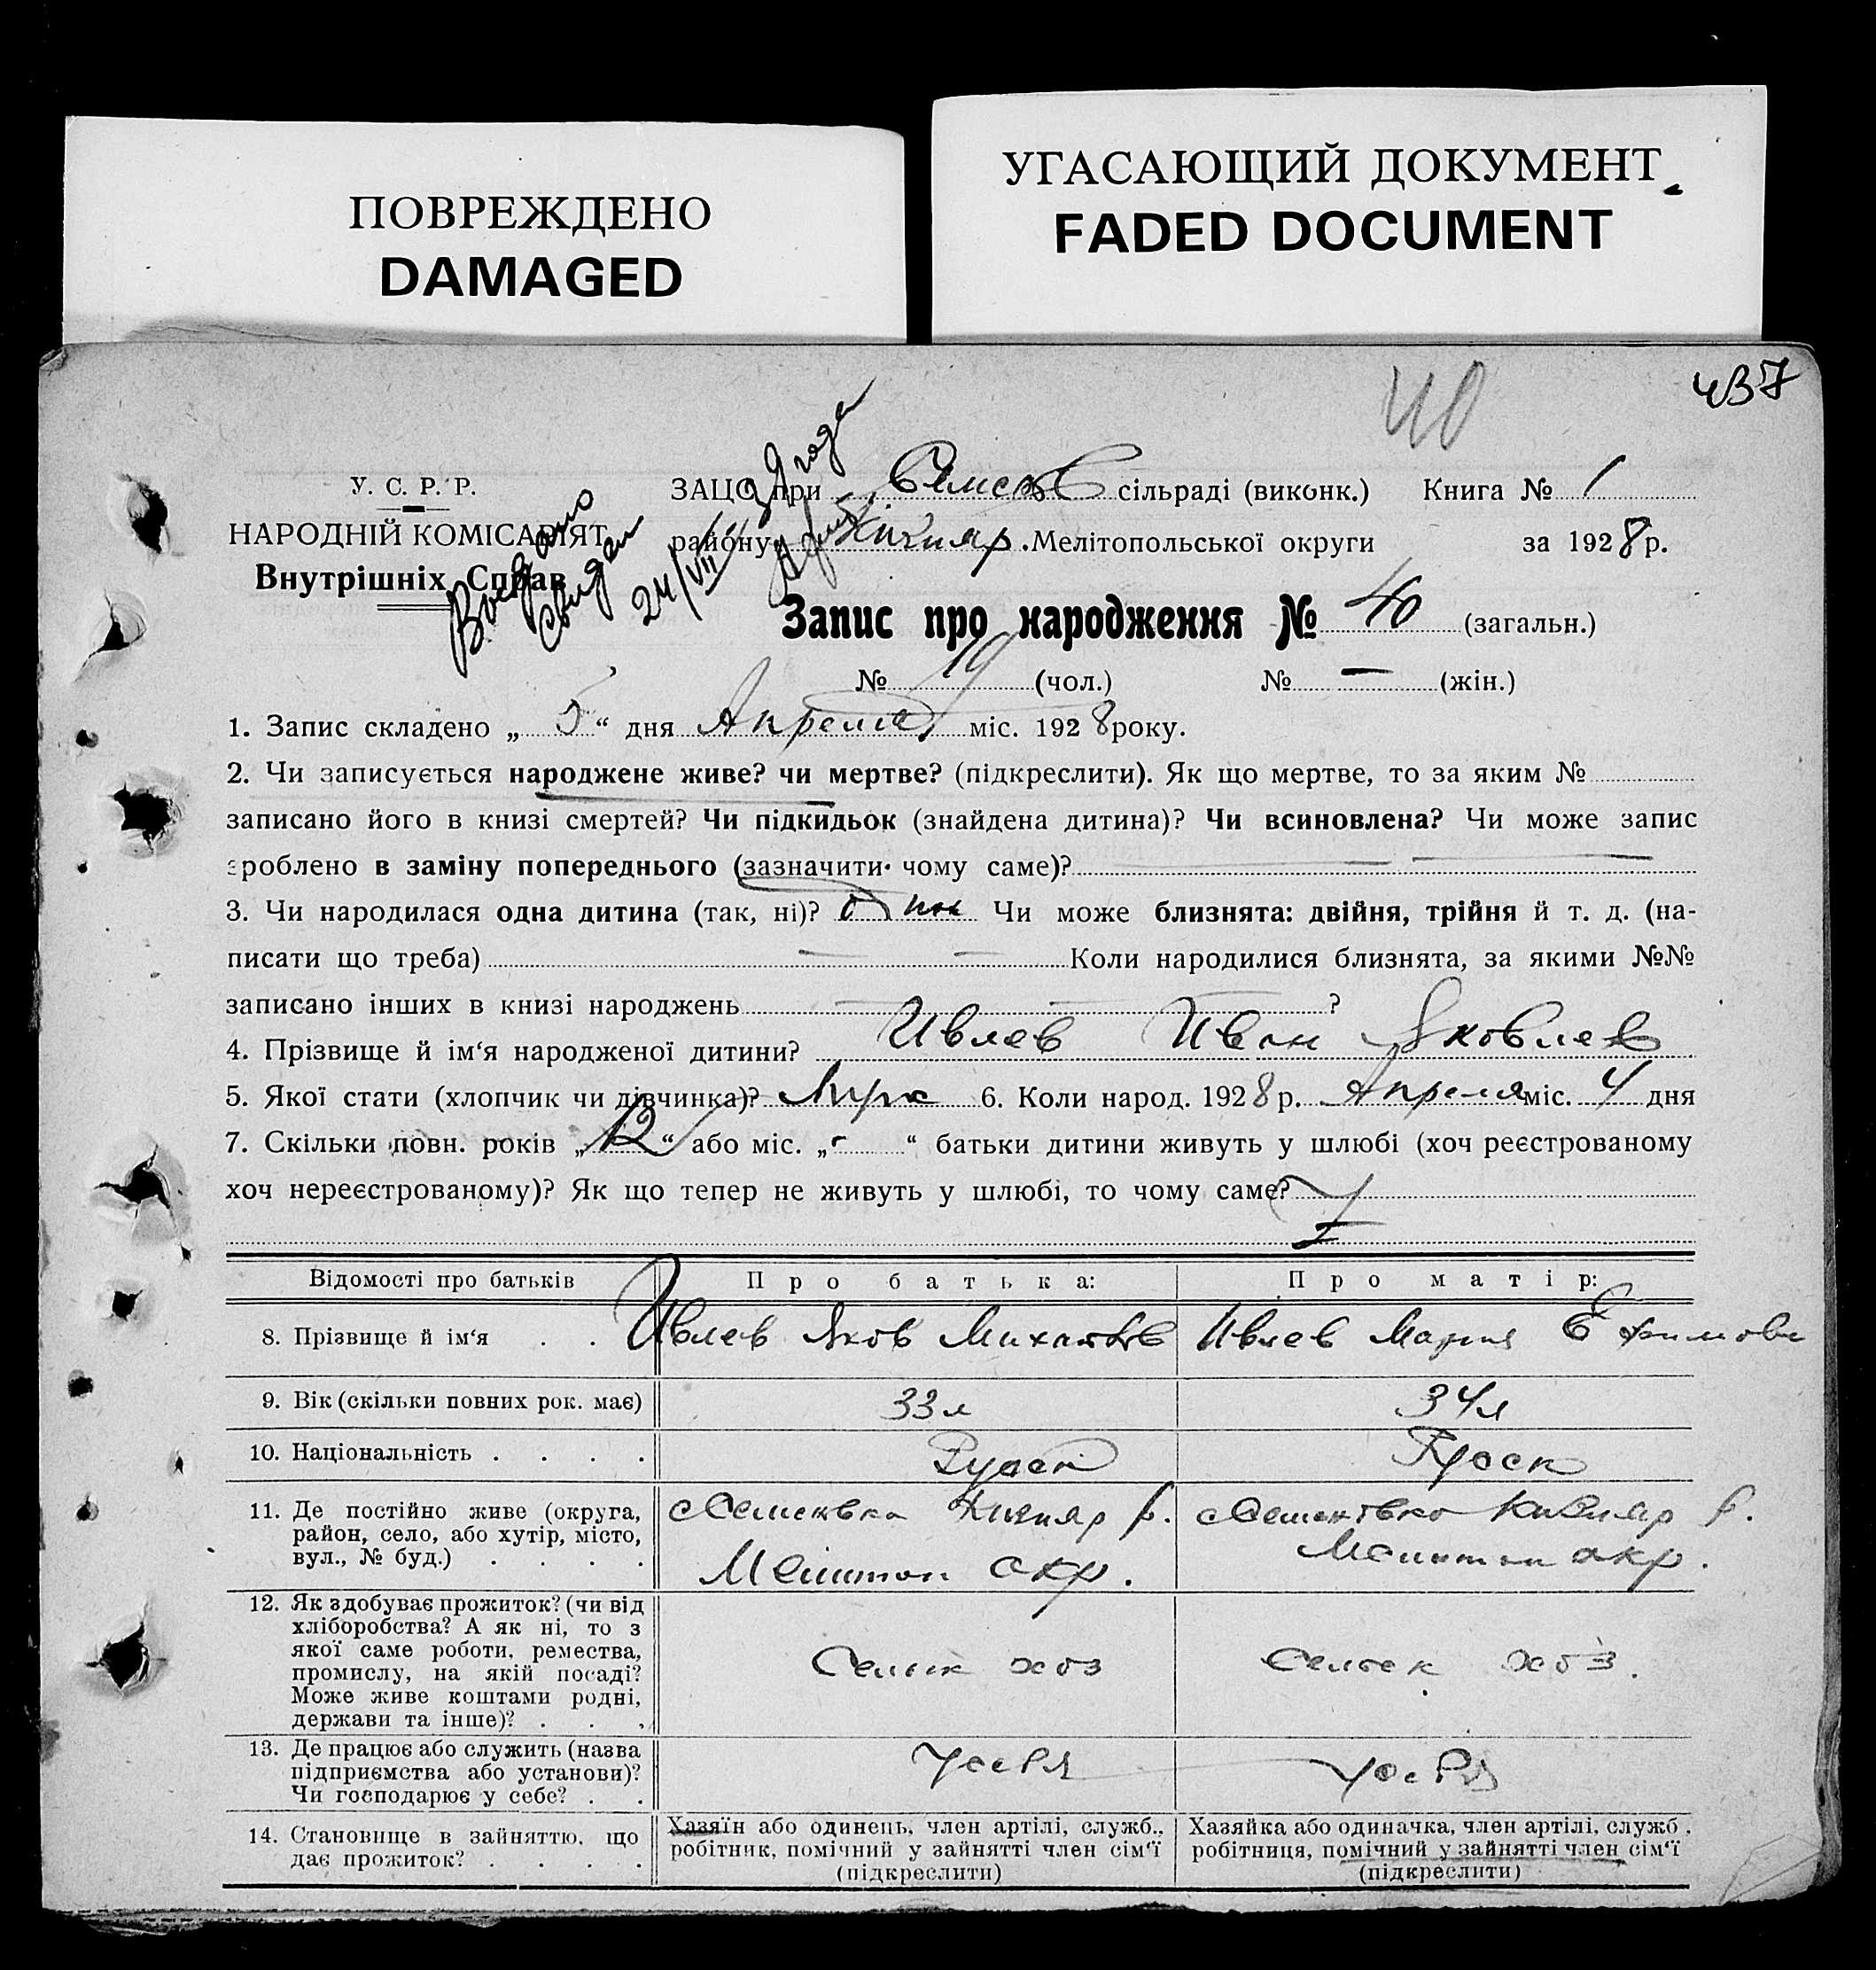 ПОВРЕЖДЕНО
DAMAGED
УГАСАЮЩИЙ ДОКУМЕНТ
FADED DOCUMENT
40
437
У. С. Р. Р.
НАРОДНІЙ КОМІСАРІЯТ
Внутрішніх Справ
24/VII 39 года
ЗАЦС при сільраді (виконк.) Книга № 1
району Мелітопольської округи за 1928 р.
Запис про народження № 40 (загальн.)
№ 19 (чол.) № — (жін.)
1. Запис складено „ 5 “ дня Апреля міс. 1928 року.
2. Чи записується народжене живе? чи мертве? (підкреслити). Як що мертве, то за яким №
записано його в книзі смертей? Чи підкидьок (знайдена дитина)? Чи всиновлена? Чи може запис
зроблено в заміну попереднього (зазначити чому саме)?
3. Чи народилася одна дитина (так, ні)? один Чи може близнята: двійня, трійня й т. д. (на-
писати що треба) Коли народилися близнята, за якими №№
записано інших в книзі народжень ?
4. Прізвище й ім‘я народженої дитини? Ивлев Иван Яковлев
5. Якої стати (хлопчик чи дівчинка)? Муж 6. Коли народ. 1928 р. Апреля міс. 4 дня
7. Скільки повн. років „ 12 “ або міс. „ - “ батьки дитини живуть у шлюбі (хоч реєстрованому
хоч нереєстрованому)? Як що тепер не живуть у шлюбі, то чому саме?
Відомості про батьків Про батька: Про матір:
8. Прізвище й ім‘я . . Ивлев Яков Ивлев Мария Ефимовн
9. Вік (скільки повних рок. має) 33 л 34 л
10. Національність . . . . Руск
11. Де постійно живе (округа,
район, село, або хутір, місто,
вул., № буд.) . . . .
Семеновка Кизияр р. Семеновка Кизияр р.
Мелитоп окр. Мелитоп окр.
12. Як здобуває прожиток? (чи від
хліборобства? А як ні, то з
якої саме роботи, ремества,
промислу, на якій посаді?
Може живе коштами родні,
держави та інше)? . . .
Сельск хоз Сельск хоз.
13. Де працює або служить (назва
підприємства або установи)?
Чи господарює у себе? . .
У себя У себя
14. Становище в зайняттю, що
дає прожиток? . . . .
Хазяїн або одинець, член артілі, служб.,
робітник, помічний у зайнятті член сім‘ї
(підкреслити)
Хазяйка або одиначка, член артілі, служб.,
робітниця, помічний у зайнятті член сім‘ї
(підкреслити)